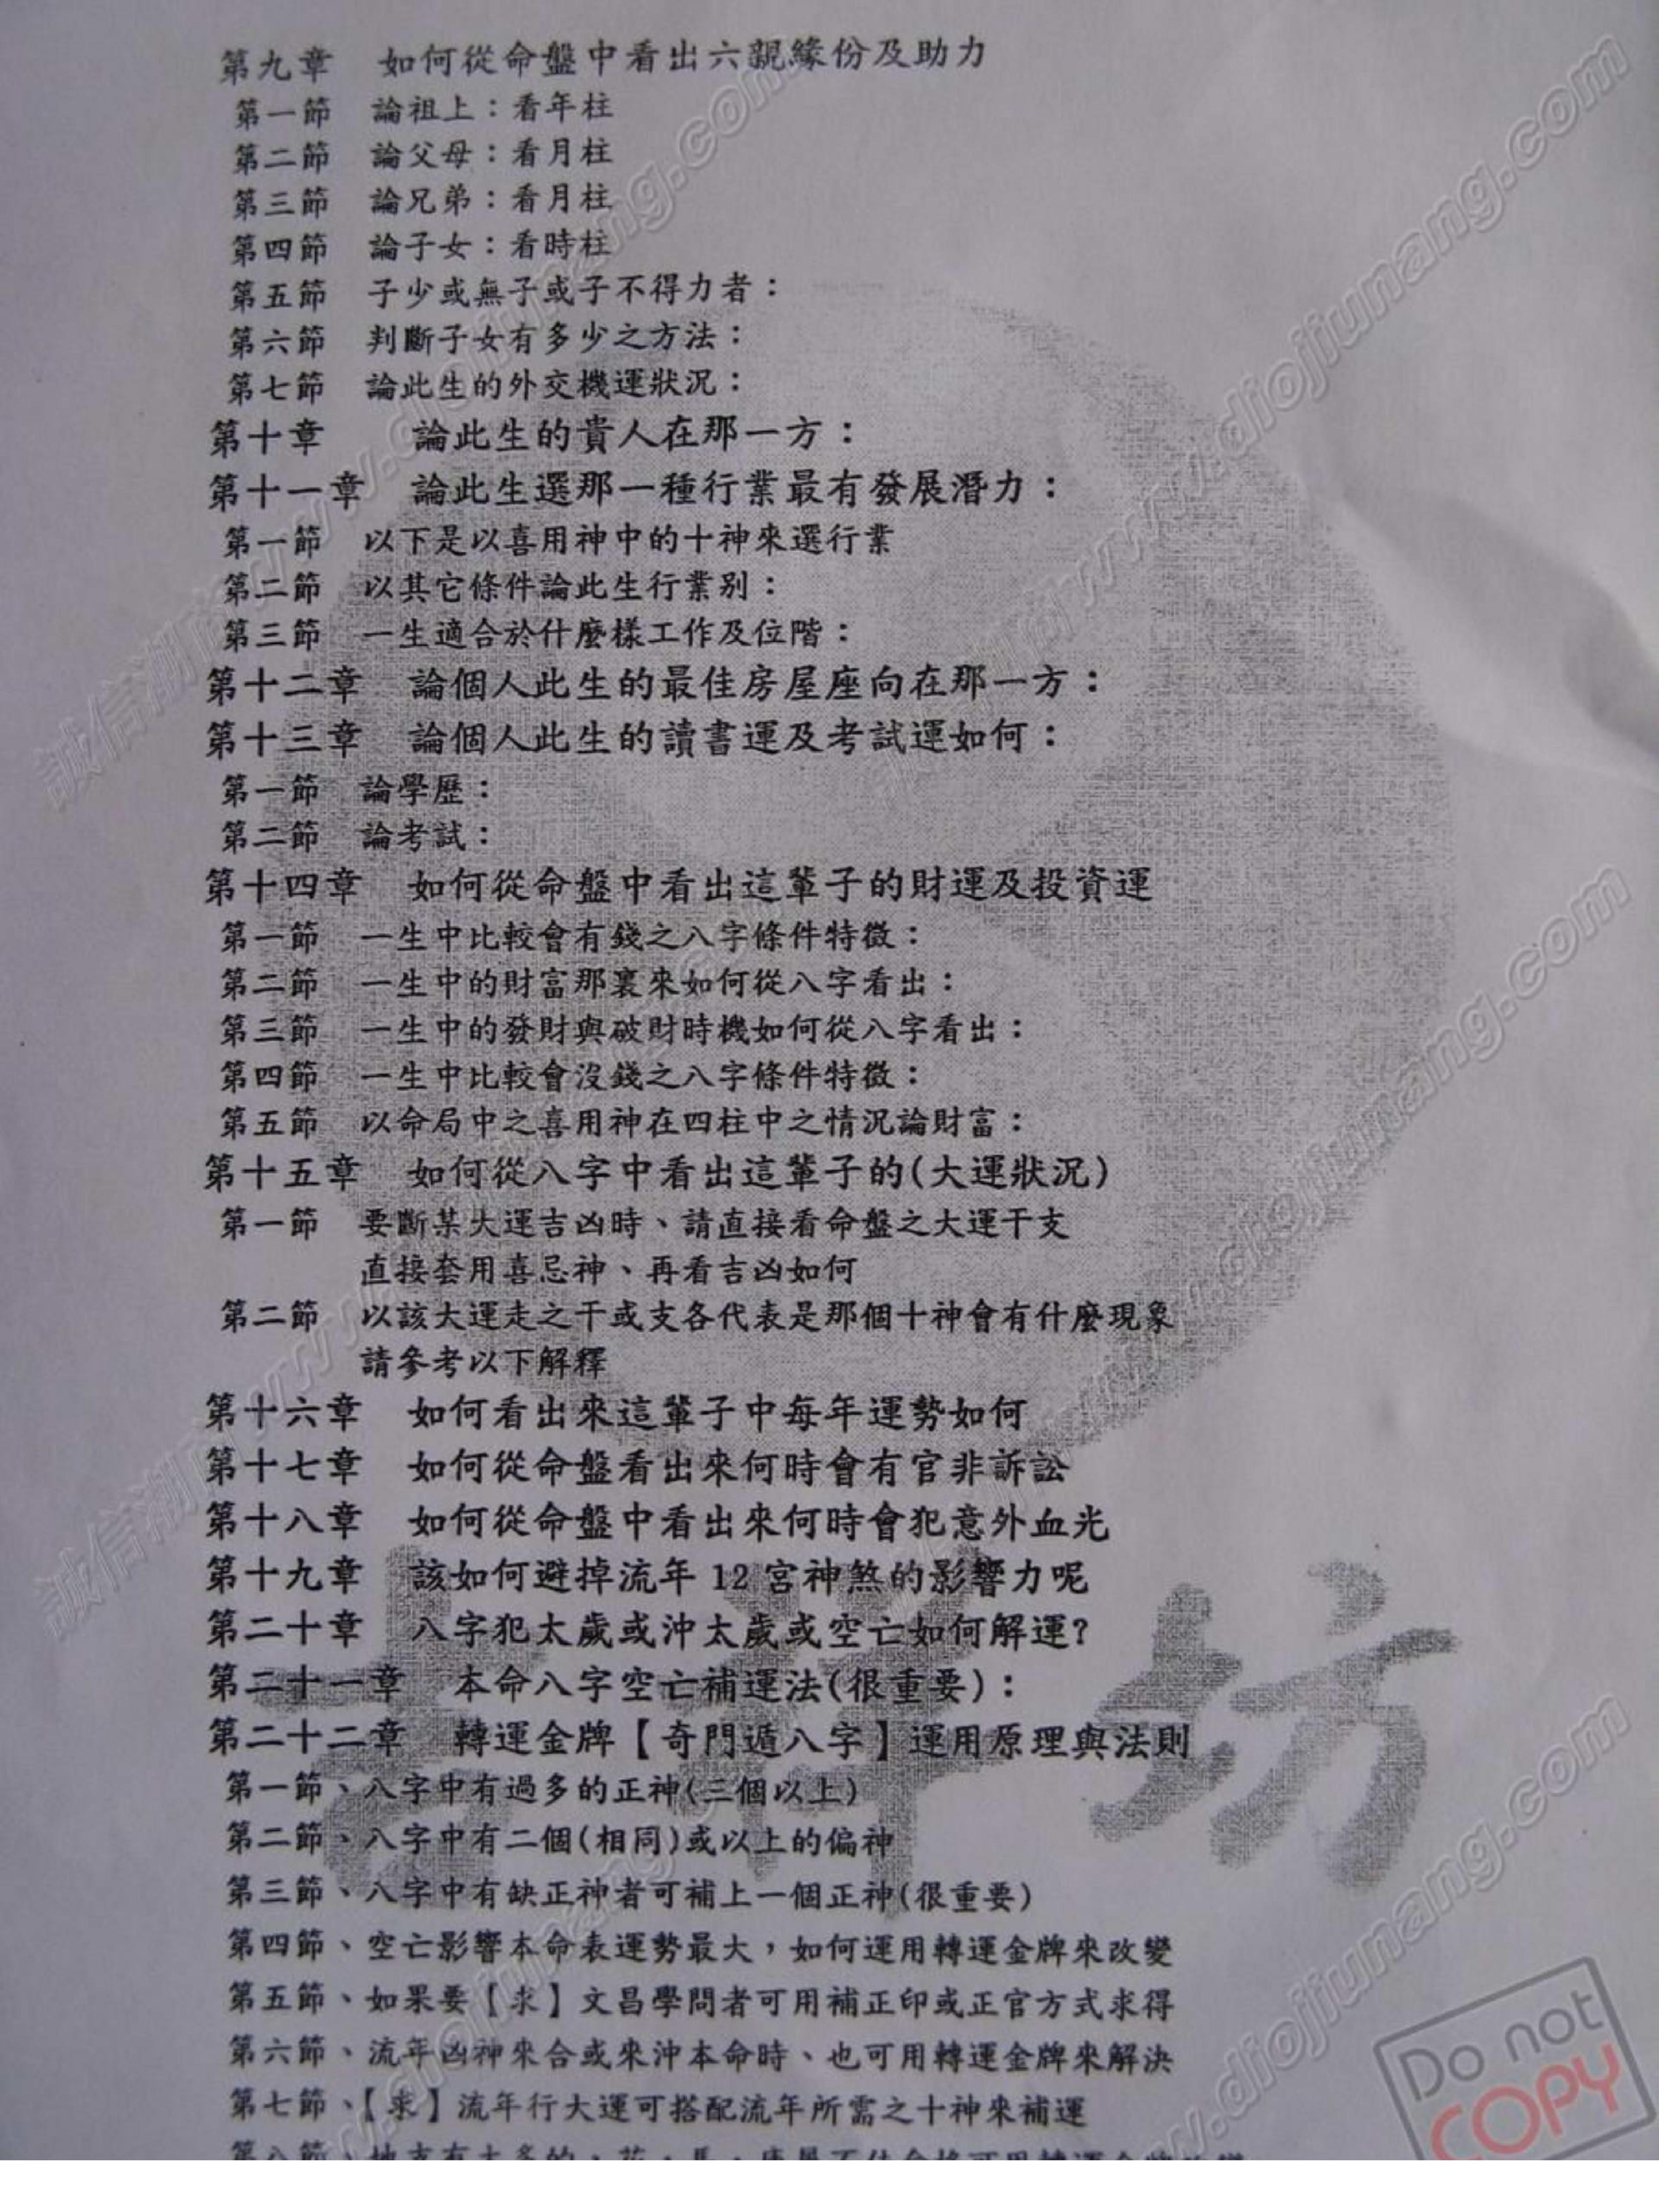 第九章 如何從命盤中看出六親緣份及助力
第一節 論祖上：看年柱
第二節 論父母：看月柱
第三節 論兄弟：看月柱
第四節 論子女：看時柱
第五節 子少或無子或子不得力者：
第六節 判斷子女有多少之方法：
第七節 論此生的外交機運狀況：
第十章 論此生的貴人在那一方：
第十一章 論此生選那一種行業最有發展潛力：
第一節 以下是以喜用神中的十神來選行業
第二節 以其它條件論此生行業別：
第三節 一生適合於什麼樣工作及位階：
第十二章 論個人此生的最佳房屋座向在那一方：
第十三章 論個人此生的讀書運及考試運如何：
第一節 論學歷：
第二節 論考試：
第十四章 如何從命盤中看出這輩子的財運及投資運
第一節 一生中比較會有錢之八字條件特徵：
第二節 一生中的財富那裏來如何從八字看出：
第三節 一生中的發財與破財時機如何從八字看出：
第四節 一生中比較會沒錢之八字條件特徵：
第五節 以命局中之喜用神在四柱中之情況論財富：
第十五章 如何從八字中看出這輩子的(大運狀況)
第一節 要斷某大運吉凶時、請直接看命盤之大運干支
直接套用喜忌神、再看吉凶如何
第二節 以該大運走之干或支各代表是那個十神會有什麼現象
請參考以下解釋
第十六章 如何看出來這輩子中每年運勢如何
第十七章 如何從命盤看出來何時會有官非訴訟
第十八章 如何從命盤中看出來何時會犯意外血光
第十九章 該如何避掉流年12宮神煞的影響力呢
第二十章 八字犯太歲或沖太歲或空亡如何解運?
第二十一章 本命八字空亡補運法(很重要)：
第二十二章 轉運金牌【奇門遁八字】運用原理與法則
第一節、八字中有過多的正神(三個以上)
第二節、八字中有二個(相同)或以上的偏神
第三節、八字中有缺正神者可補上一個正神(很重要)
第四節、空亡影響本命表運勢最大，如何運用轉運金牌來改變
第五節、如果要【求】文昌學問者可用補正印或正官方式求得
第六節、流年凶神來合或來沖本命時、也可用轉運金牌來解決
第七節、【求】流年行大運可搭配流年所需之十神來補運
坊
www.diojiunang.com
Do not
COPY